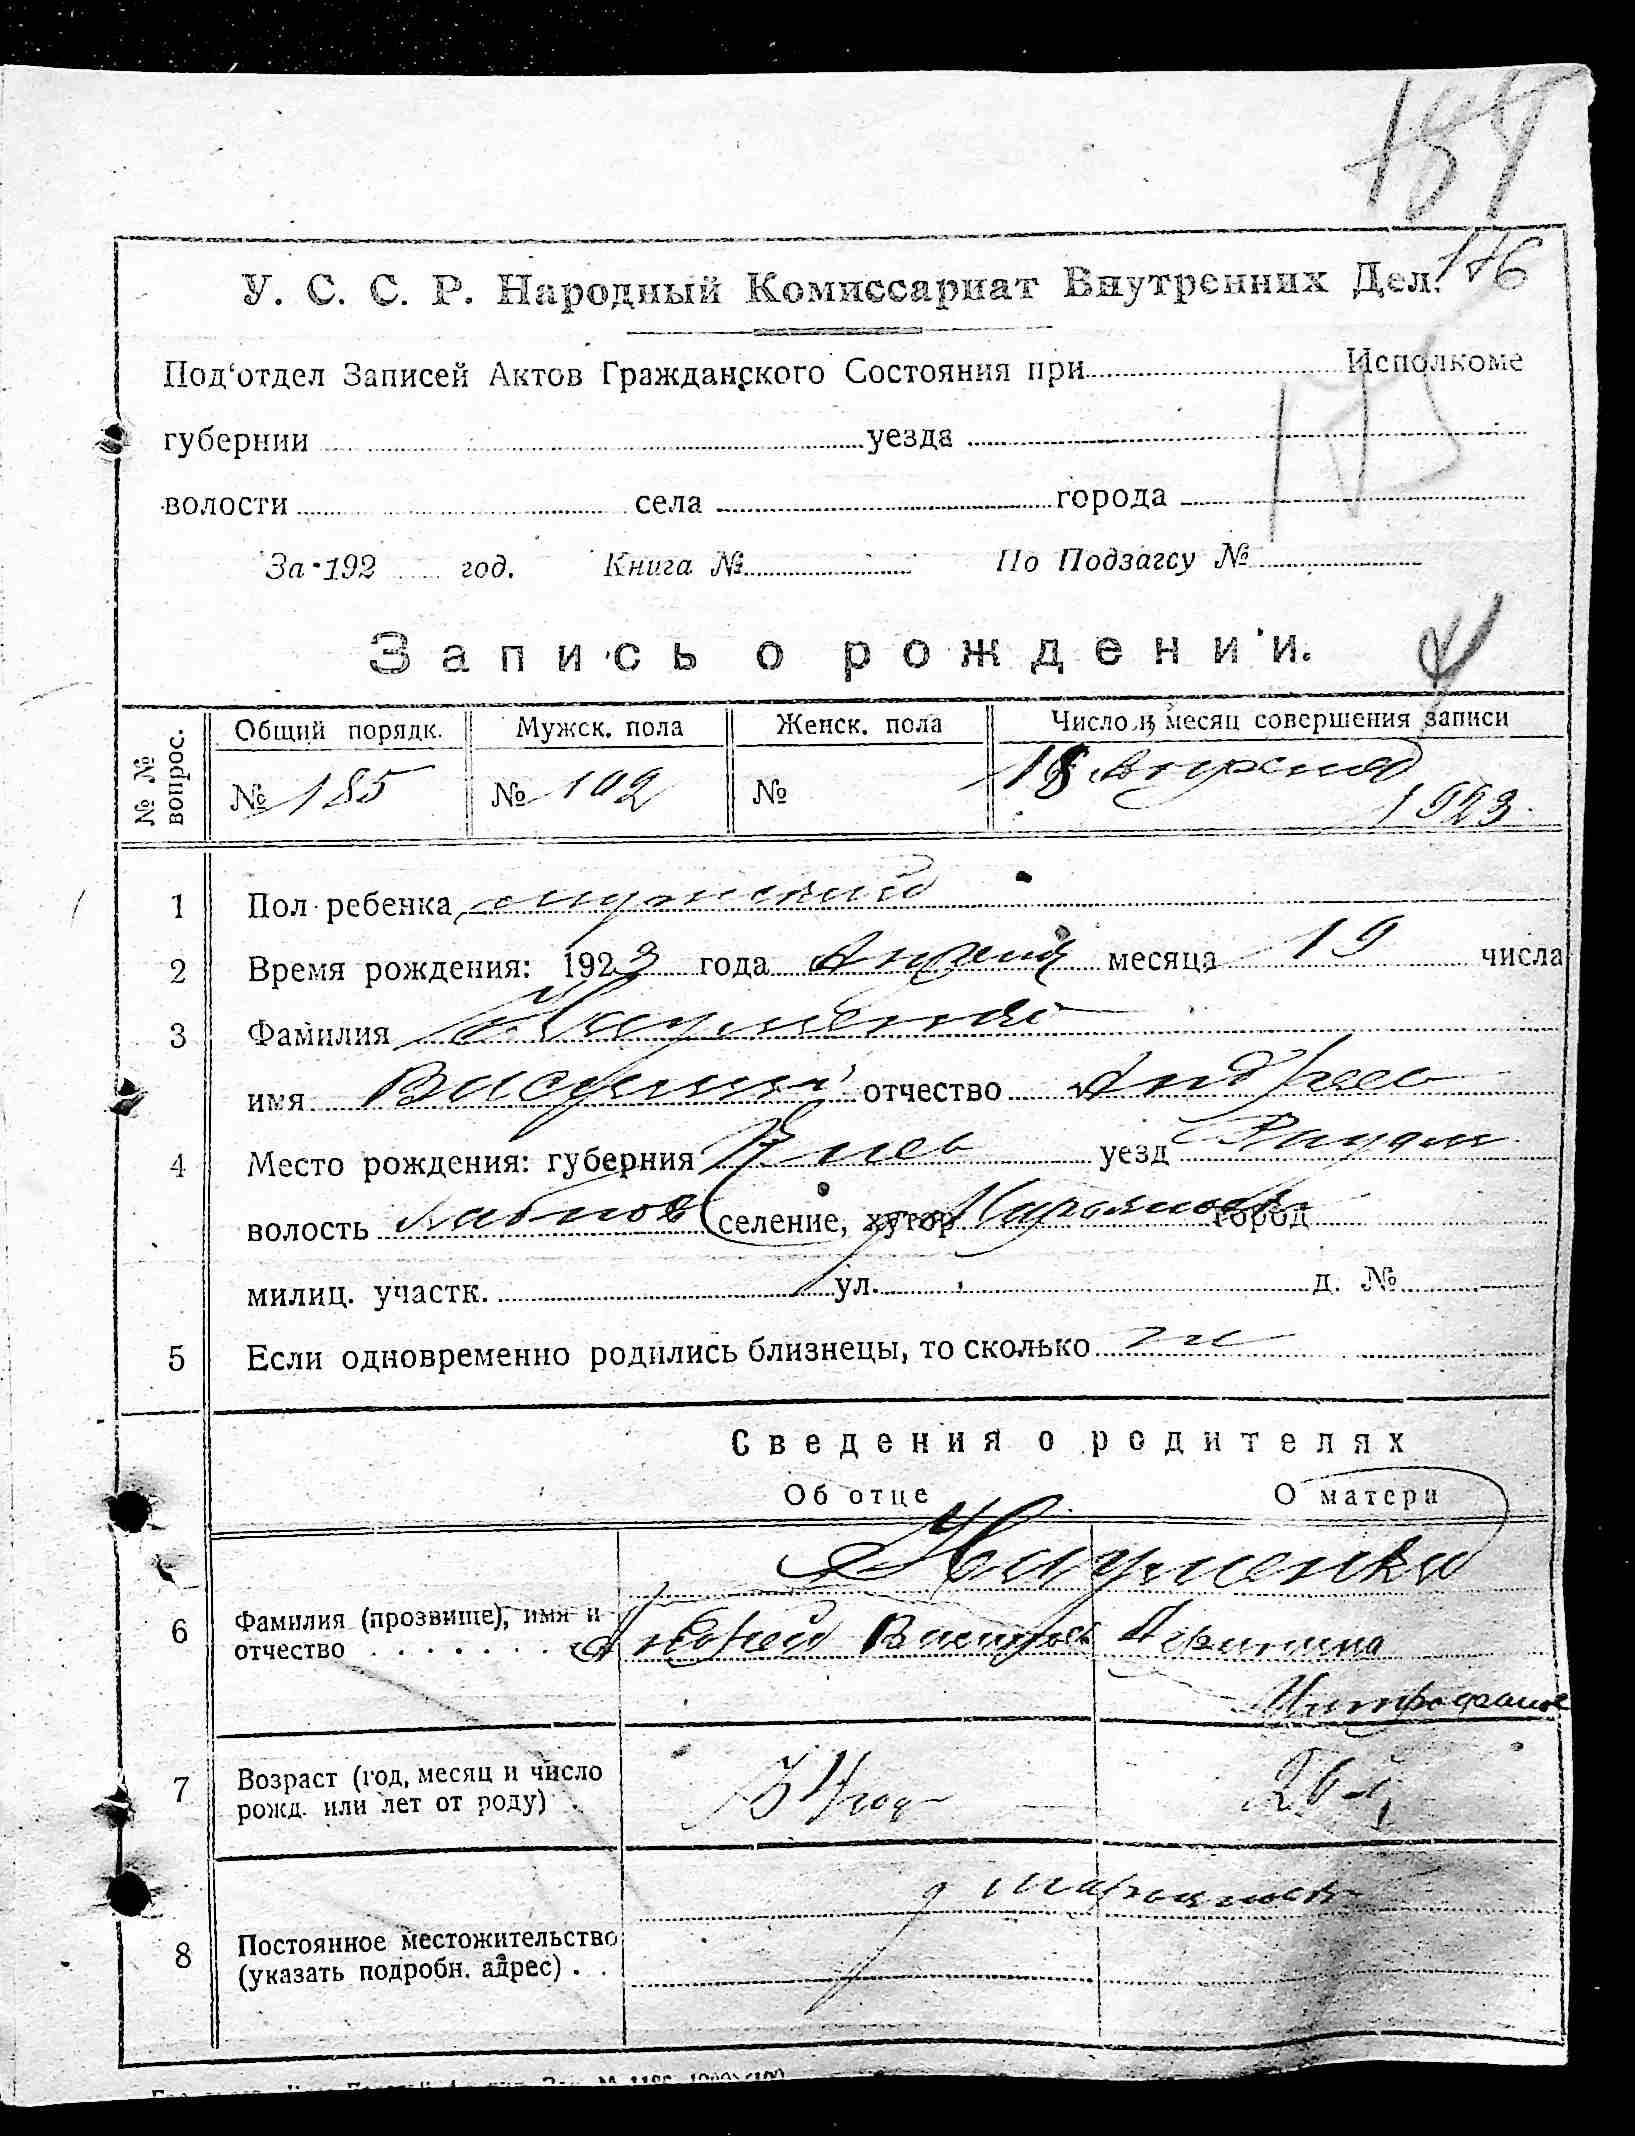 184
176
У. С. С. Р. Народный Комиссариат Внутренних Дел.
175
Под‘отдел Записей Актов Гражданского Состояния при Исполкоме
губернии уезда
волости села города
За 192 год. Книга № По Подзагсу №
Запись о рождении.
№ № вопрос.
Общий порядк. Мужск. пола Женск. пола Число и месяц совершения записи
№ 185 № 102 № 18 Апреля
1923
1 Пол ребенка мужский
2 Время рождения: 1923 года Апреля месяца 19 числа
3 Фамилия Науменко
имя Василий отчество Андреев
4 Место рождения: губерния Киев уезд
волость селение, хутор город
милиц. участк. ул. д. №
5 Если одновременно родились близнецы, то сколько
Сведения о родителях
Об отце О матери
Науменко
6 Фамилия (прозвище), имя и
отчество Андрей Васильев
Митрофанов
7 Возраст (год, месяц и число
рожд. или лет от роду) 34 год 26
8 Постоянное местожительство
(указать подробн. адрес)